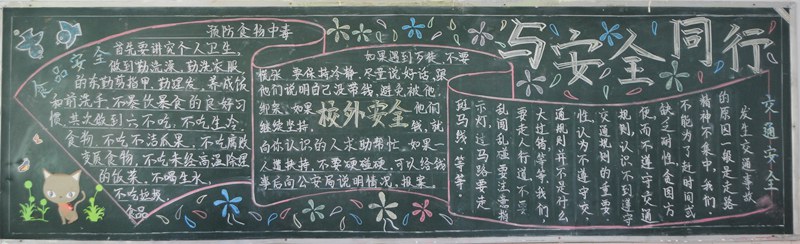 与安全同行
食品安全
预防食物中毒
首先要讲究个人卫生,
做到勤洗澡,勤洗衣服,
的东勤剪指甲,勤理发,养成饭
和前洗手,不暴饮暴食的良好习
惯,其次做到六不吃,不吃生冷
食物,不吃不洁瓜果,不吃腐败
变质食物,不吃未经高温处理
的饭菜,不喝生水,
不吃垃圾
食品
校外安全
如果遇到万技,不要
慌张,要保持冷静,尽量说好话,跟
他们说明自己没带钱,避免被他
绑架,如果
他们
继续坚持,
钱,就
向你认识的人求助帮忙。如果一
人遭挟持,不要硬碰硬,可以给钱
事后向公安局说明情况,报案。
交通安全
发生交通事故
的原因一般是走路
精神不集中,我们
不能为了赶时间或
缺乏耐性贪图方
便而不遵守交通
规则,认识不到遵守
交通规则的重要
性,认为不遵守交
通规则并不是什么
大过错等等,我们
要走人行道,不要
乱闯乱碰,要注意指
示灯,过马路要走
斑马线,等等